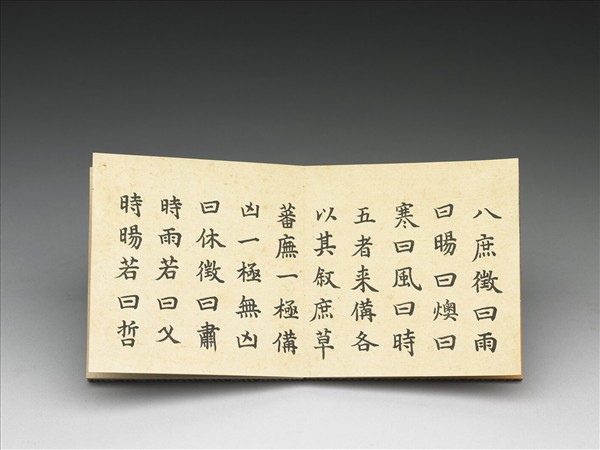 八庶徵曰雨
曰暘曰燠曰
寒曰風曰時
五者来備各
以其叙庶草
蕃廡一極備
凶一極無凶
曰休徵曰肅
時雨若曰父
時暘若曰哲